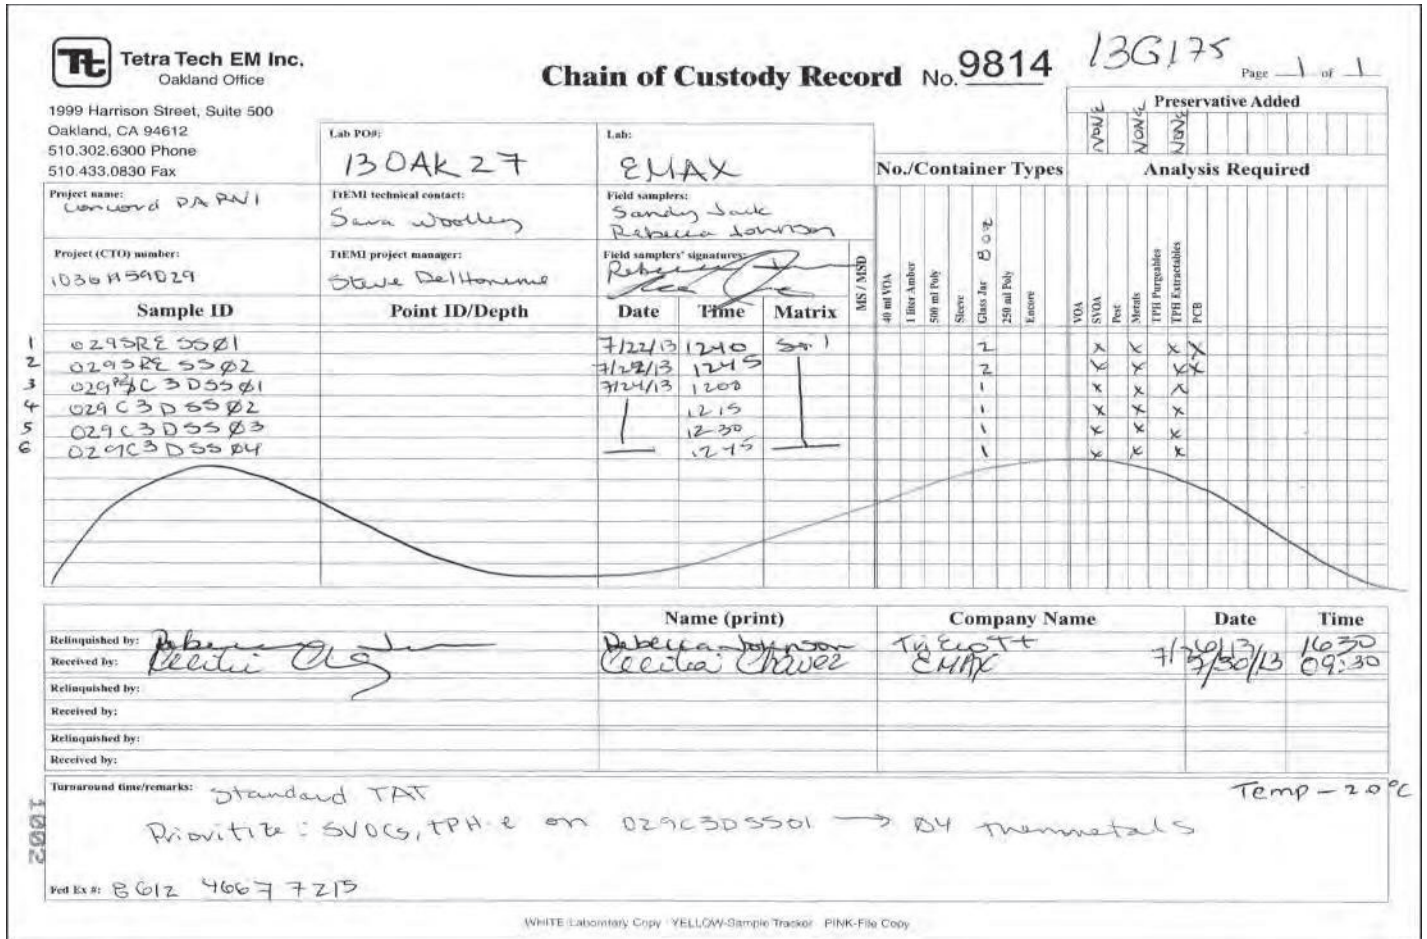 Tt Tetra Tech EM Inc.
Oakland Office
1999 Harrison Street, Suite 500
Oakland, CA 94612
510.302.6300 Phone
510.433.0830 Fax
Chain of Custody Record No. 9814
13G175
Page 1 of 1
Preservative Added
NONE NONE NONE
Lab PO#:
13OAK27
Lab:
EMAX
No./Container Types
Analysis Required
Project name:
Concord PA RNI
TtEMI technical contact:
Sara Woolley
Field samplers:
Sandy Jack
Rebecca Johnson
Project (CTO) number:
TtEMI project manager:
Steve Delhomme
Field samplers' signatures:
MS / MSD
40 ml VOA
1 liter Amber
500 ml Poly
Sleeve
Glass Jar 8oz
250 ml Poly
Encore
VOA
SVOA
Pest
Metals
TPH Purgeables
TPH Extractables
PCB
Sample ID Point ID/Depth Date Time Matrix
1 029SRESSØ1 7/22/13 1240 Soil 2 X X X X
2 029SRESSØ2 7/22/13 1245 2 X X X X
3 029C3DSSØ1 7/24/13 1200 1 X X X
4 029C3DSSØ2 1215 1 X X X
5 029C3DSSØ3 1230 1 X X X
6 029C3DSSØ4 1245 1 X X X
Name (print) Company Name Date Time
Relinquished by: Rebecca Johnson 1630
Received by: Cecilia Chavez EMAX 7/30/13 09:30
Relinquished by:
Received by:
Relinquished by:
Received by:
Turnaround time/remarks: Standard TAT
Temp - 2.0°C
Prioritize: SVOCs, TPH-e on 029C3DSS01 → Ø4 then metals
1002
Fed Ex #: 8612 4667 7215
WHITE-Laboratory Copy YELLOW-Sample Tracker PINK-File Copy